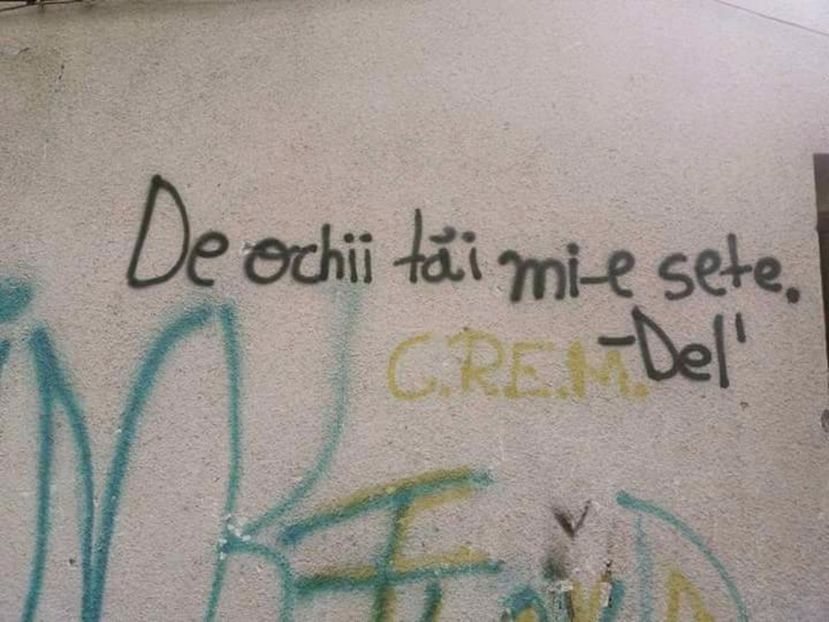 De ochii tăi mi-e sete.
-Del'
C.R.E.M.